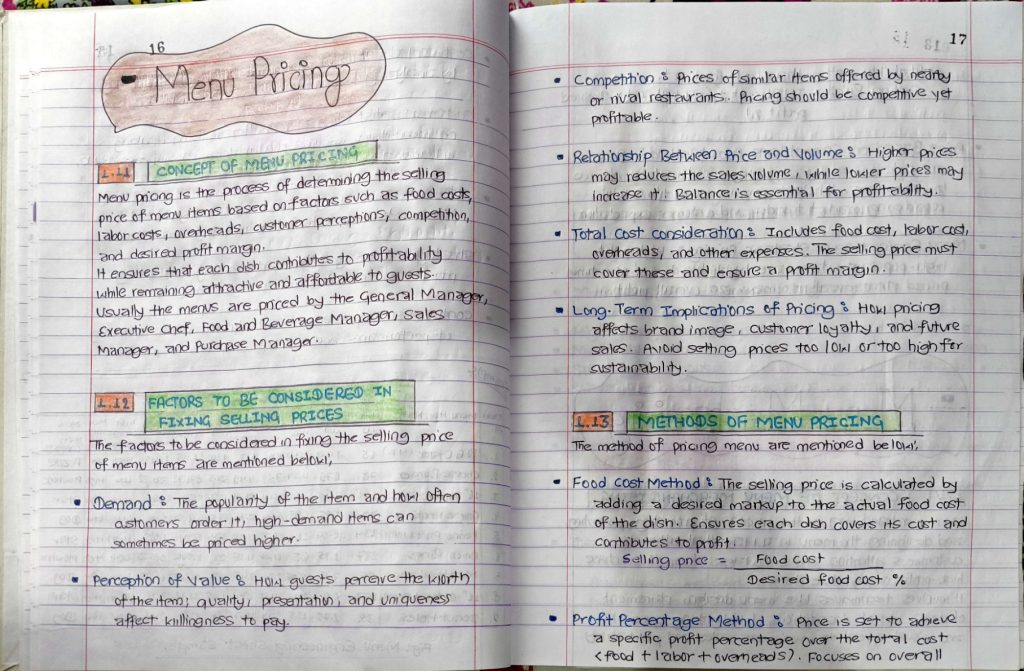 16
Menu Pricing
1.11 CONCEPT OF MENU PRICING
Menu pricing is the process of determining the selling
price of menu items based on factors such as food costs,
labor costs, overheads, customer perceptions, competition,
and desired profit margin.
It ensures that each dish contributes to profitability
while remaining attractive and affordable to guests.
Usually the menus are priced by the General Manager,
Executive Chef, Food and Beverage Manager, Sales
Manager, and Purchase Manager.
1.12 FACTORS TO BE CONSIDERED IN
FIXING SELLING PRICES
The factors to be considered in fixing the selling price
of menu items are mentioned below;
• Demand : The popularity of the item and how often
customers order it, high-demand items can
sometimes be priced higher.
• Perception of Value : How guests perceive the worth
of the item; quality, presentation, and uniqueness
affect willingness to pay.
17
• Competition : Prices of similar items offered by nearby
or rival restaurants. Pricing should be competitive yet
profitable.
• Relationship Between Price and Volume : Higher prices
may reduces the sales volume, while lower prices may
increase it. Balance is essential for profitability.
• Total Cost consideration : Includes food cost, labor cost,
overheads, and other expenses. The selling price must
cover these and ensure a profit margin.
• Long-Term Implications of Pricing : How pricing
affects brand image, customer loyalty, and future
sales. Avoid setting prices too low or too high for
sustainability.
1.13 METHODS OF MENU PRICING
The method of pricing menu are mentioned below;
• Food Cost Method : The selling price is calculated by
adding a desired markup to the actual food cost
of the dish. Ensures each dish covers its cost and
contributes to profit.
Selling price = Food cost
Desired food cost %
• Profit Percentage Method : Price is set to achieve
a specific profit percentage over the total cost
(food + labor + overheads). Focuses on overall